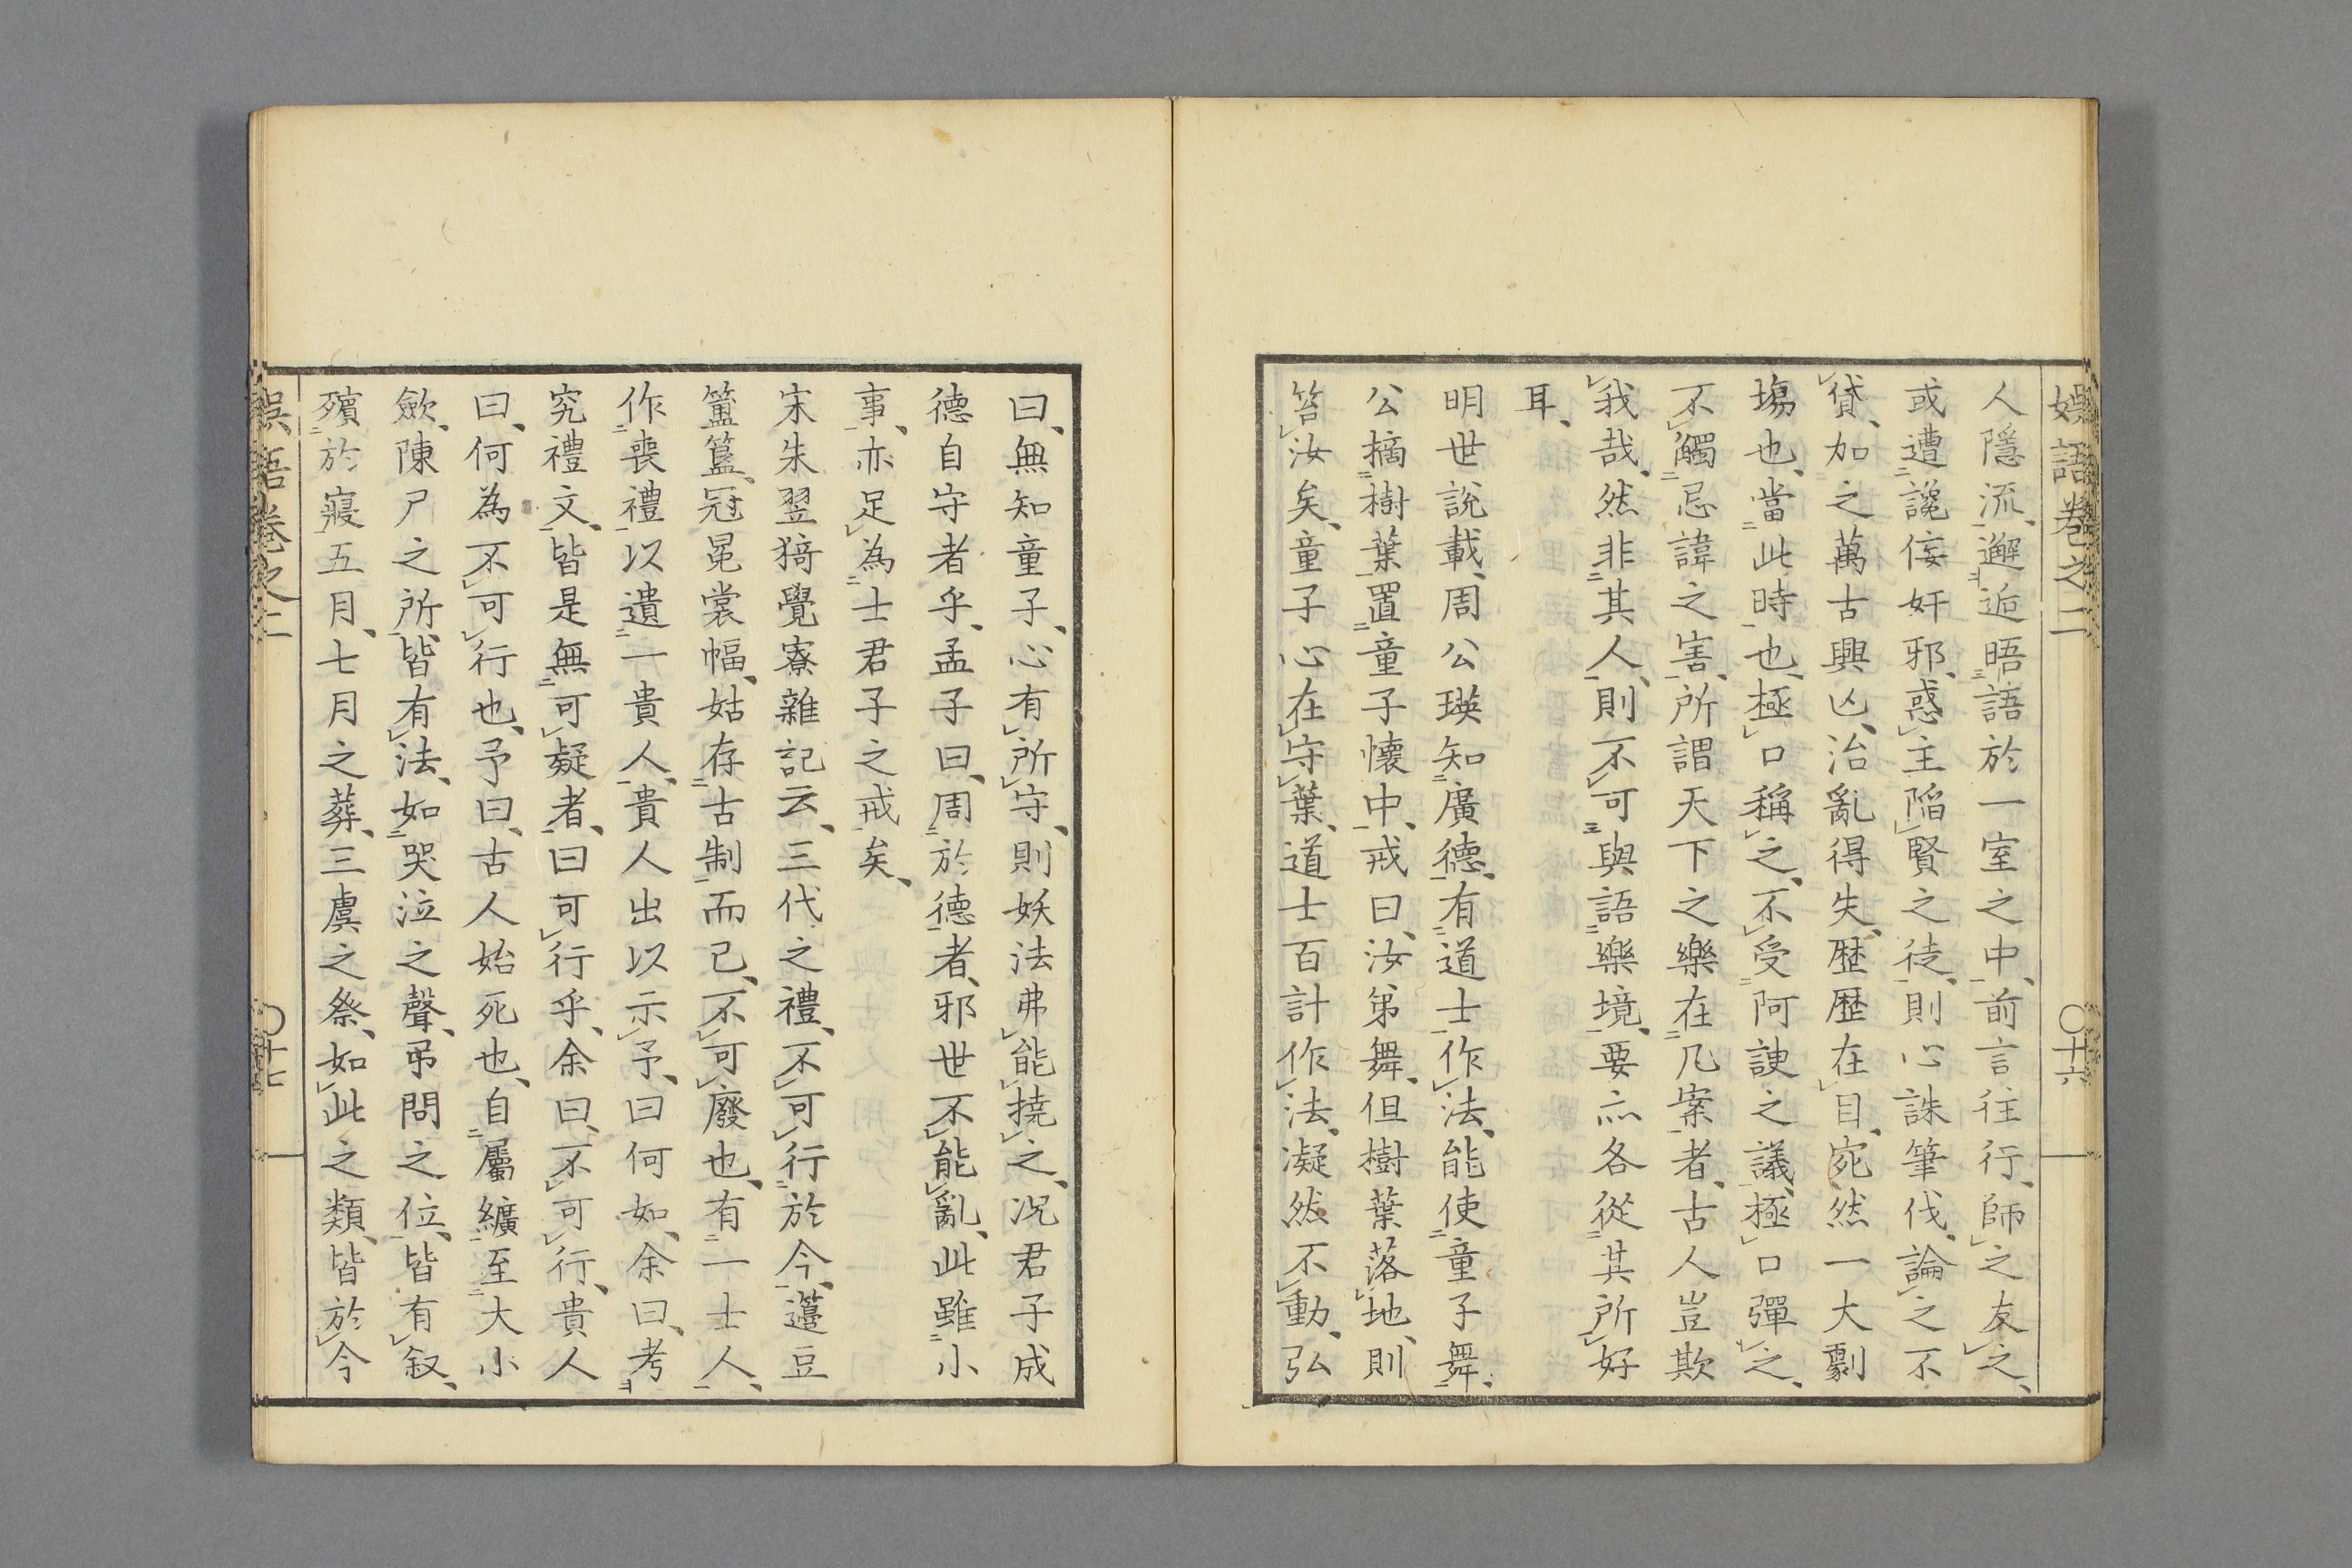 娯語卷之二 〇十六
人隱流、邂逅晤語於一室之中、前言往行、師之友之、
或遭讒侫奸邪、惑主陷賢之徒、則心誅筆伐、論之不
貸、加之萬古興凶、治亂得失、歴歴在目、宛然一大劇
塲也、當此時也、極口稱之、不受阿諛之議、極口彈之、
不觸忌諱之害、所謂天下之樂在几案者、古人豈欺
我哉、然非其人、則不可與語樂境、要亦各從其所好
耳、
明世説載、周公瑛知廣德、有道士作法、能使童子舞、
公摘樹葉置童子懷中、戒曰、汝第舞、但樹葉落地、則
笞汝矣、童子心在守葉、道士百計作法、凝然不動、弘
曰、無知童子、心有所守、則妖法弗能撓之、况君子成
德自守者乎、孟子曰、周於德者、邪世不能亂、此雖小
事、亦足為士君子之戒矣、
宋朱翌猗覺寮雜記云、三代之禮、不可行於今、籩豆
簠簋、冠冕裳幅、姑存古制而已、不可廢也、有一士人、
作喪禮以遺一貴人、貴人出以示予、曰何如、余曰、考
究禮文、皆是無可疑者、曰可行乎、余曰、不可行、貴人
曰、何為不可行也、予曰、古人始死也、自屬纊至大小
歛、陳尸之所、皆有法、如哭泣之聲、弔問之位、皆有叙、
殯於寢、五月、七月之葬、三虞之祭、如此之類、皆於今
娯語卷之二 〇十七